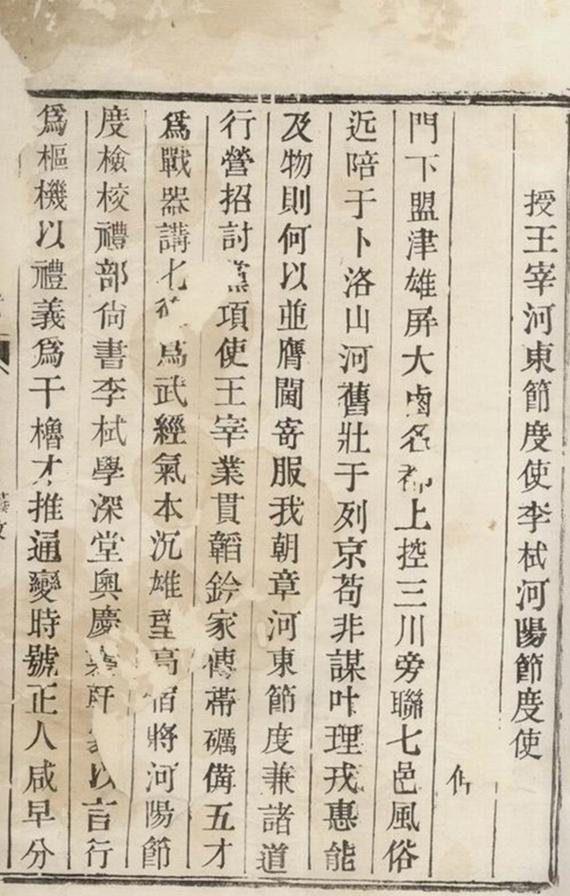 授王宰河東節度使李栻河陽節度使
門下盟津雄屏大鹵名都上控三川旁聯七邑風俗
近陪于卜洛山河舊壯于列京苟非謀叶理戎惠能
及物則何以並膺閫寄服我朝章河東節度兼諸道
行營招討黨項使王宰業貫韜鈐家傳帶礪備五才
爲戰器講七爲武經氣本沉雄望高宿將河陽節
度檢校禮部尙書李栻學深堂奧慶軒以言行
爲樞機以禮義爲干櫓才推通變時號正人咸早分